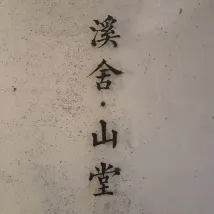 溪舍·山堂